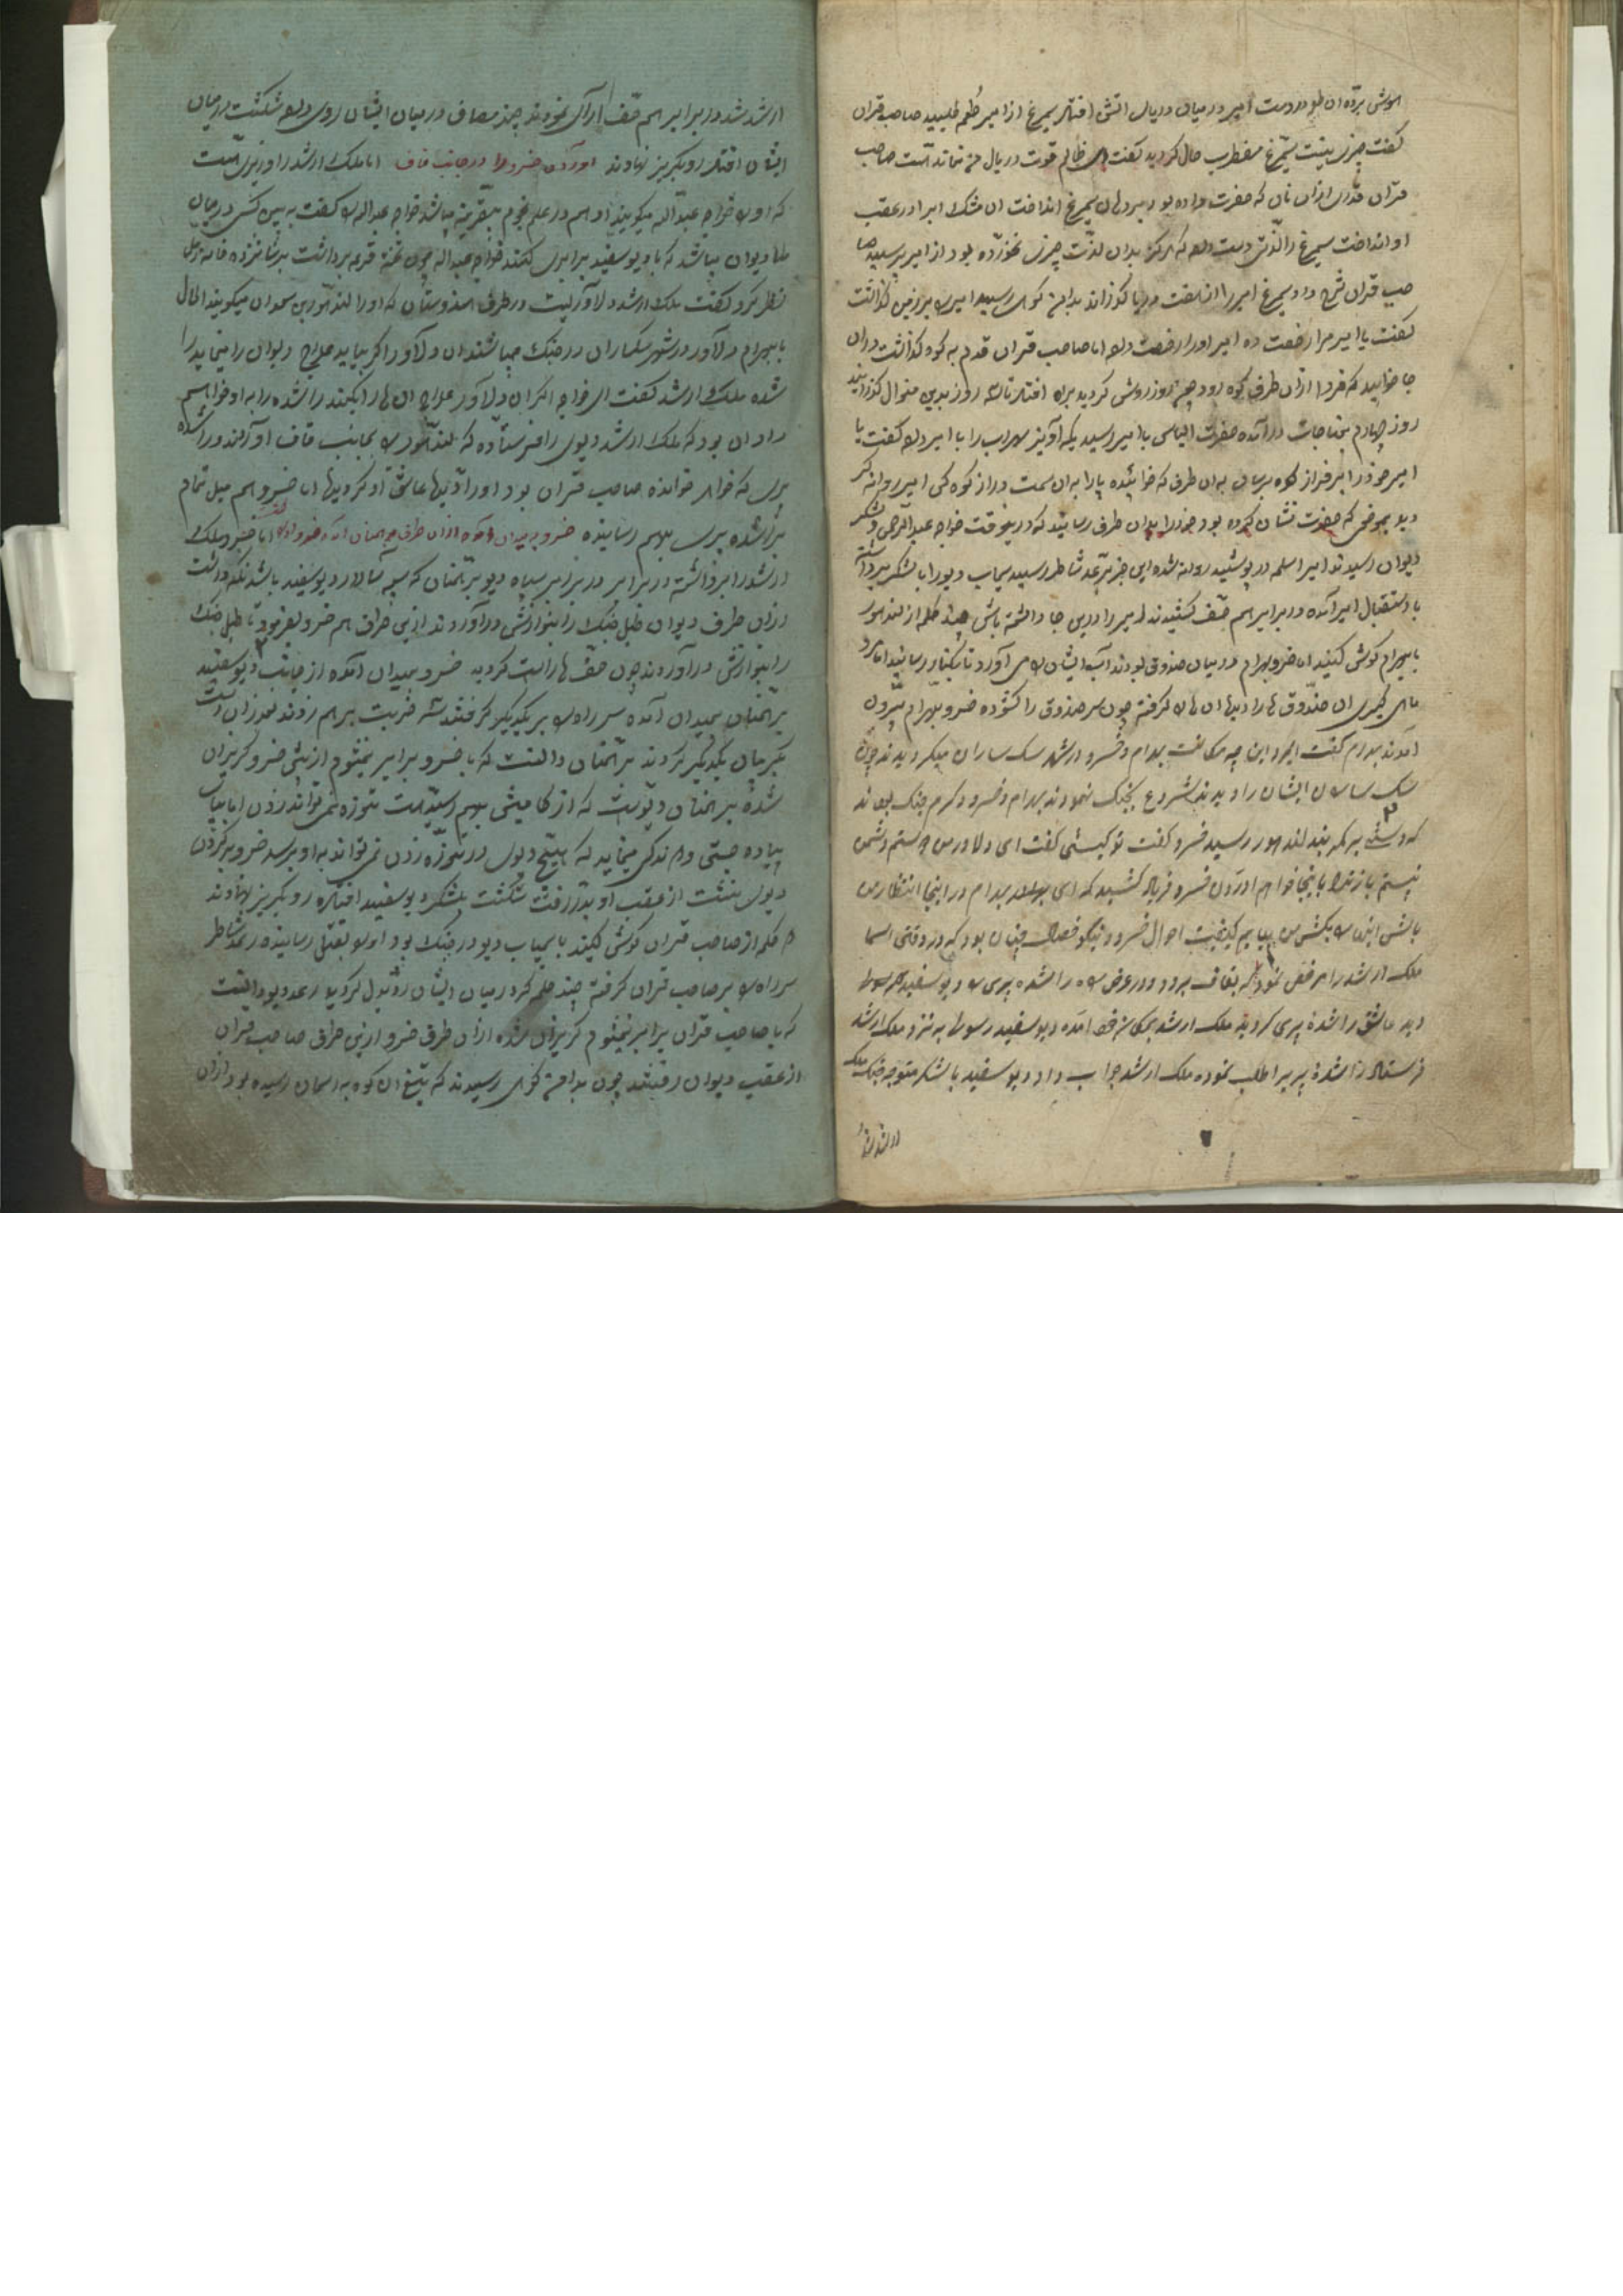 هوش برده ان طور دست امیر در میان دریای اتش افتاد سیمرغ از امیر طعم طلبید صاحب قران
گفت چیزی نیست سیمرغ مضطرب حال گردید گفت ای ظالم قوت در بال من نمانده است صاحب
قران قدری ازان نان که حضرت داده بود بر دهان سیمرغ انداخت ان مشک ابرا در عقب
او انداخت سیمرغ را لذتی دست داد که هرگز بدان لذت چیزی نخورده بود از امیر پرسید صا
حب قران شرح داد سیمرغ امیر را از هفت دریا گذراند بدامن کوهی رسید امیر را بر زمین گذاشت
گفت یا امیر مرا رخصت ده امیر او را رخصت داد اما صاحب قران قدم به کوه گذاشت دران
جا خوابید که فردا ازان طرف کوه رود چون روز روشن گردید براه افتاد تا سه روز بدین منوال گذرانید
روز چهارم بمناجات درآمده حضرت الیاس با امیر رسید یکه آویز سهراب را با امیر داد گفت یا
امیر خود را بر فراز کوه برسان به ان طرف که خوابیده پا را به ان سمت دراز کوه کن امیر روانه
دید بموضعی که حضرت نشان کرده بود خود را بدان طرف رسانید که درینوقت خواجه عبدالرحمن و لشکر
دیوان رسیدند امیر اسلحه در پوشید روانه شده این خبر برعد شاطر رسید سیماب دیو را با لشکر برداشته
با استقبال امیر آمده در برابر هم صف کشیدند امیر را درین جا داشته باش چند کلمه از لندهور
با بهرام گوش کنید اما خسرو بهرام در میان صندوق بودند آب ایشان را می آورد تا بکنار رسانید
ماهی گیری ان صندوق ها را دید ان ها را گرفته چون سر صندوق را گشوده خسرو بهرام بیرون
آمدند بهرام گفت این چه مکانست بهرام و خسرو در شهر سک ساران میگردیدند چون
سک ساران ایشان را دیدند شروع بجنگ نمودند بهرام و خسرو در گرم جنگ بودند
که دستی به کمربند لندهور رسید خسرو گفت تو کیستی گفت ای دلاور من دوستم دشمن
نیستم باز ترا باینجا خواهم اورد خسرو فریاد کشید که ای بهرام در اینجا انتظار من
بکش من بیایم کیفیت احوال خسرو نیکو خصال چنان بود که در وقتی
ملک ارشد را مرخص نمود که بقاف برود در عرض راه راشده پری را دیو سفید
دید عاشق راشده پری گردید ملک ارشد بمکان خود آمده دیو سفید رسولی به نزد ملک ارشد
فرستاد راشده پری را طلب نموده ملک ارشد جواب داد دیو سفید با لشکر متوجه جنگ ملک
ارشد شد
ارشد شد در برابر هم صف آرای نمودند چند مصاف در میان ایشان روی داد شکست در میان
ایشان افتاد رو بگریز نهادند اوردن خسرو را در جانب قاف اما ملک ارشد را وزیری است
که او را خواجه عبداله میگویند او هم در علم نجوم بیقرینه میباشد خواجه عبداله را گفت ببین کسی در میان
ما دیوان میباشد که با دیو سفید برابری کند خواجه عبداله چون تخته قرعه برداشت
نظر کرد گفت ملک ارشد دلاوریست در طرف هندوستان که او را لندهور بن سعدان میگویند الحال
با بهرام دلاور در شهر سکساران در جنگ میباشند ان دلاور اگر بیاید علاج دیوان را مینماید
شده ملک ارشد گفت ای خواجه اگر ان دلاور علاج ان ها را بکند راشده را به او خواهم
داد ان بود که ملک ارشد دیوی را فرستاده که لندهور را بجانب قاف آورد لندهور راشده
پری که خواهر خوانده صاحب قران بود او را دید عاشق او گردید اما خسرو هم میل تمام
براشده پری بهم رسانیده خسرو بمیدان ازان طرف اما خسرو ملک
ارشد را برداشته در برابر سپاه دیو برهمنان که سپه سالار دیو سفید باشد نگه داشت
ازان طرف دیوان طبل جنگ را بنوازش درآوردند ازین طرف هم خسرو بفرمود تا طبل جنگ
را بنوازش درآوردند چون صف ها راست گردید خسرو بمیدان آمده از جانب دیو سفید
برهمنان بمیدان آمده سر راه را بر یکدیگر گرفتند سه ضربت بر هم زدند بعد ازان دست
بگریبان یکدیگر کردند برهمنان دانست که با خسرو برابر نمیشوم از پیش خسرو گریزان
شده برهمنان دیویست که از کامیش بهم رسیده است نمی تواند زدن اما بسیار
پیاده چستی و زندگی مینماید که هیچ دیوی نمی تواند به او برسد خسرو بر گردن
دیوی نشست از عقب او بدر رفت شکست بلشکر دیو سفید افتاده رو بگریز نهادند
دو کلمه از صاحب قران گوش کنید با سیماب دیو در جنگ بود او را بقتل رسانیده رعد شاطر
سر راه را بر صاحب قران گرفته چند حمله در میان ایشان رد بدل گردید رعد دیو دانست
که با صاحب قران برابر نمیشوم گریزان شده ازان طرف خسرو ازین طرف صاحب قران
از عقب دیوان رفتند چون بدامن کوهی رسیدند که تیغ ان کوه به اسمان رسیده بود ازان